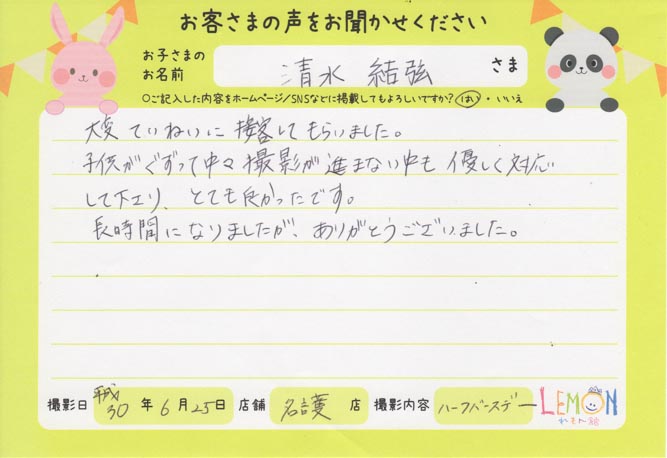 お客さまの声をお聞かせください
お子さまの
お名前
清水 結弦 さま
○ご記入した内容をホームページ/SNSなどに掲載してもよろしいですか? はい・いいえ
大変 ていねいに 接客して もらいました。
子供がぐずって中々 撮影が 進まない中も 優しく対応
して下さり、とても良かったです。
長時間になりましたが、ありがとうございました。
撮影日 平成30 年 6 月 25 日 店舗 名護 店 撮影内容 ハーフバースデー LEMON
れもん館